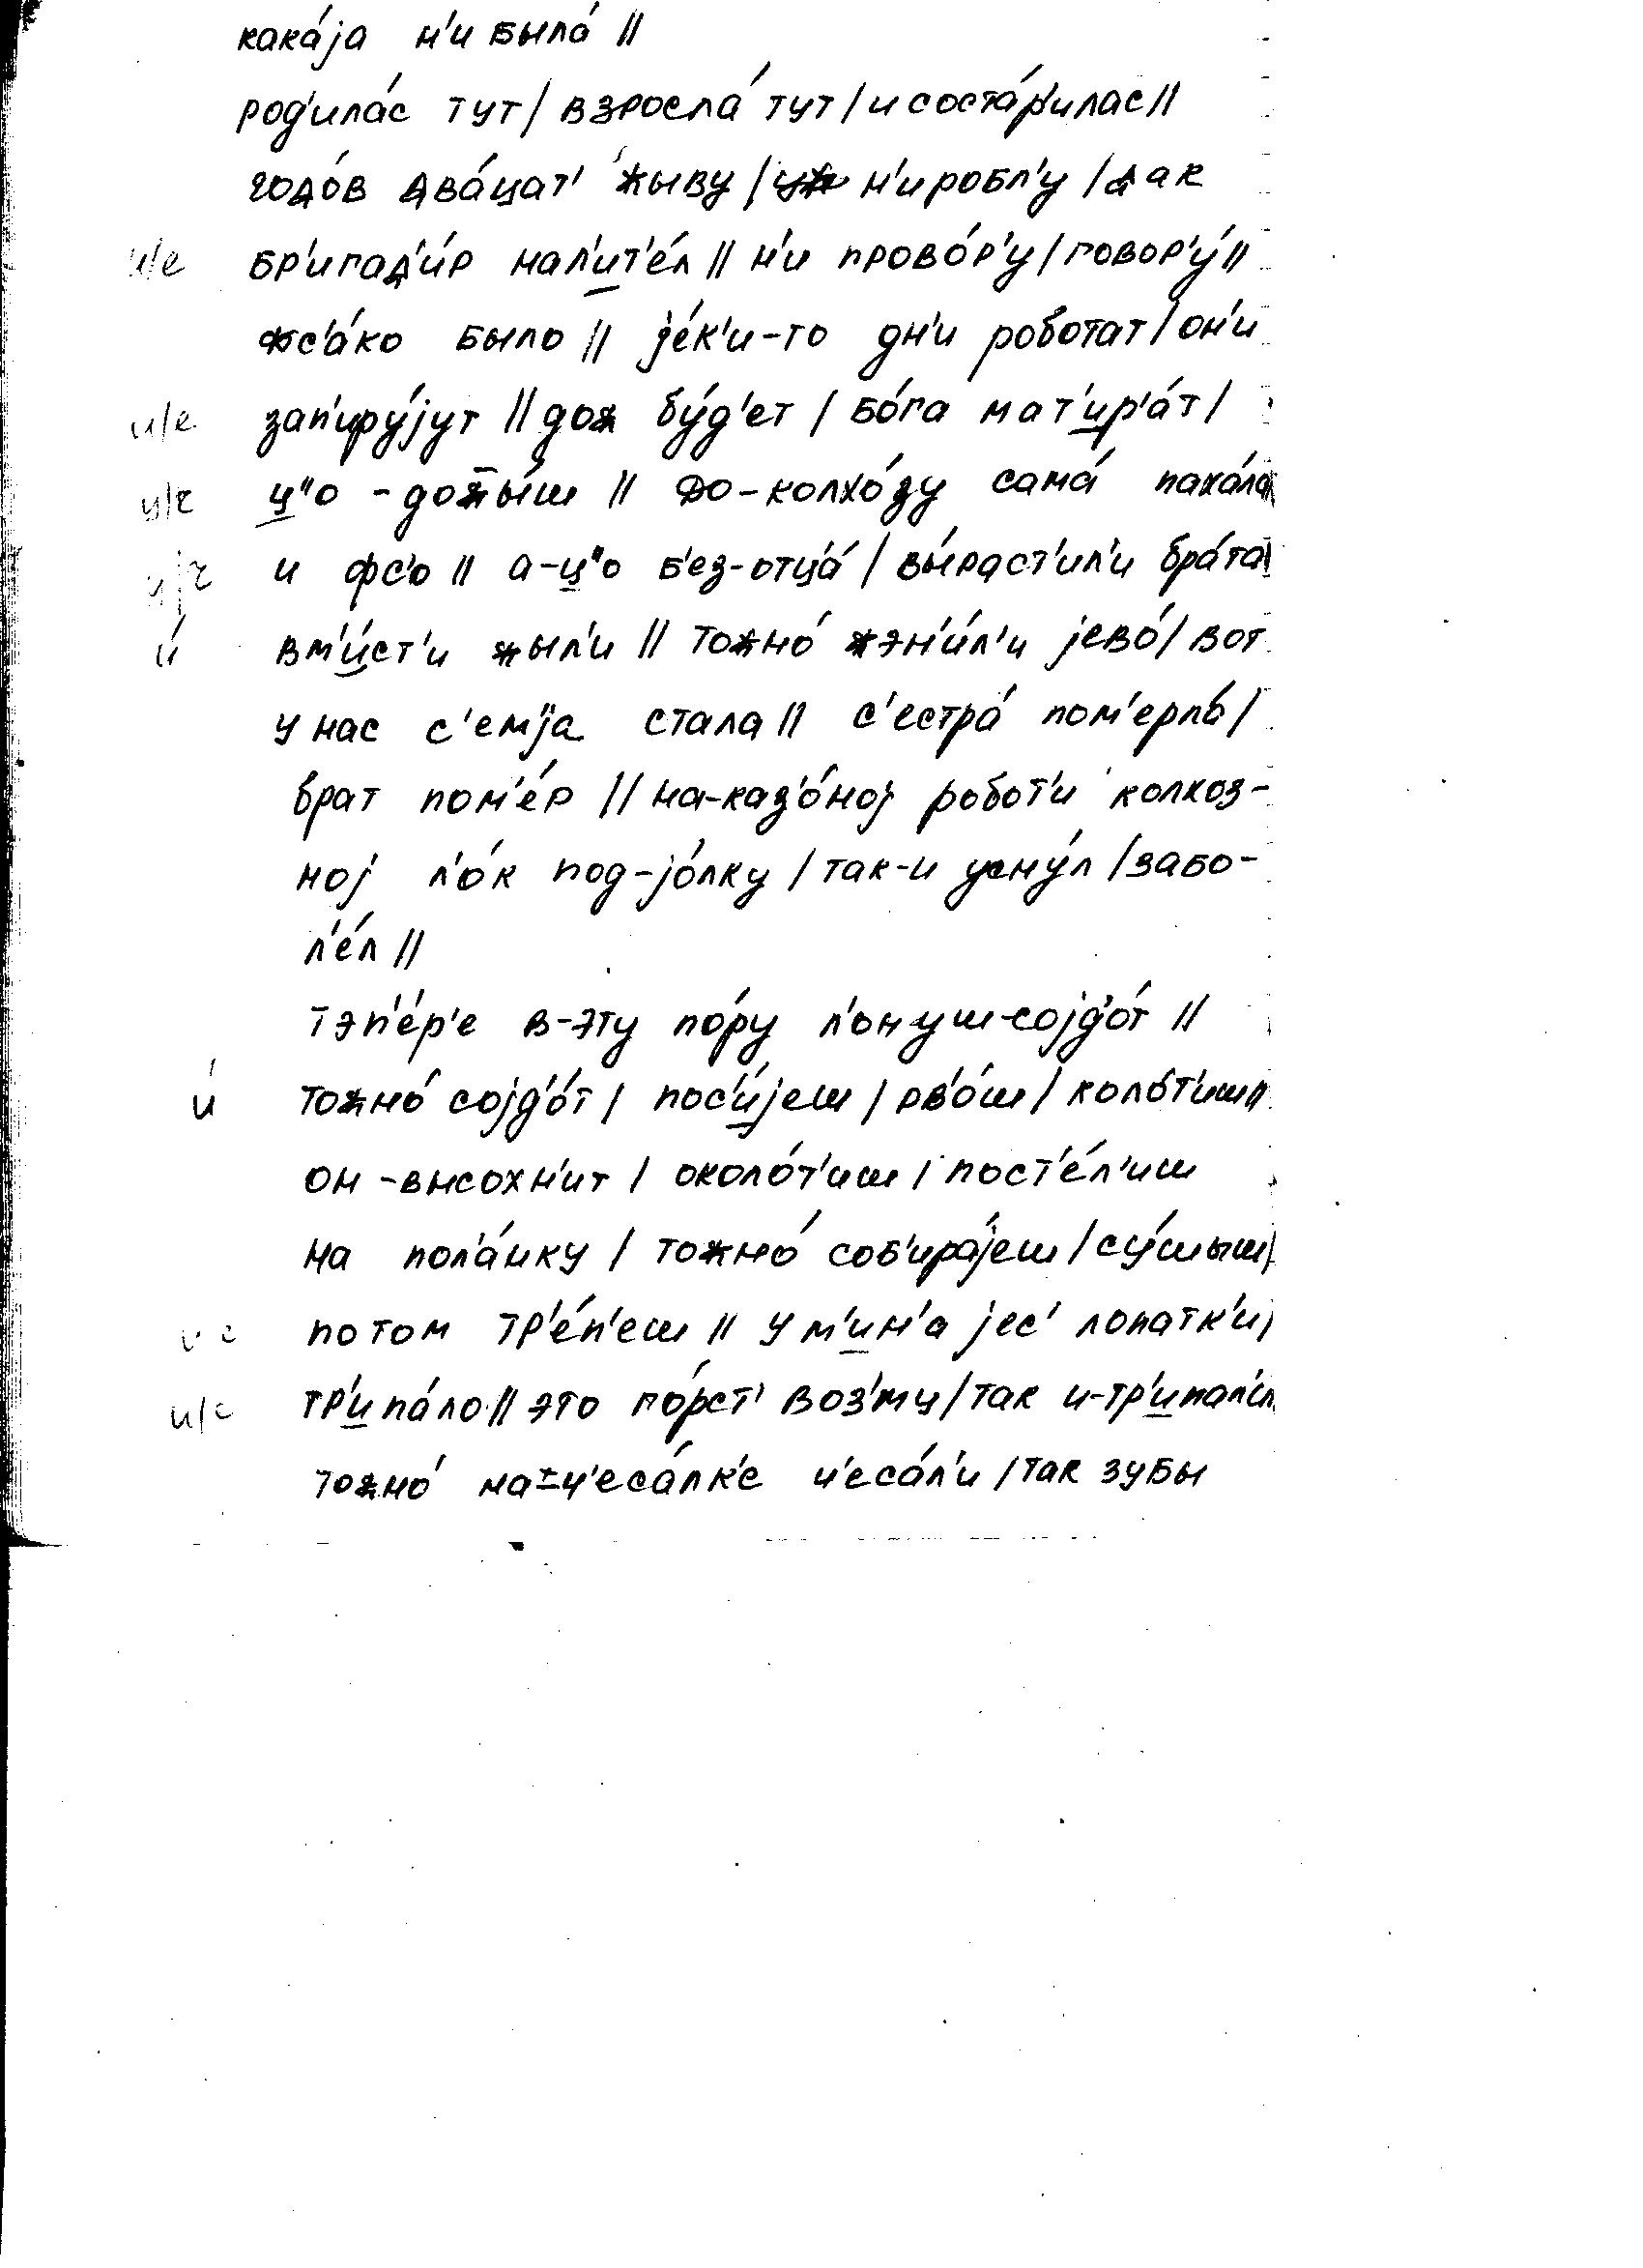 кака́jа н'и была́ ||
род'ила́с тут | взросла́ тут | и соста́р'илас ||
годо́в два́цат' жыву | н'и робл'у | дак
и/е бр'игад'и́р нал'ит'е́л || н'и прово́р'у | говор'у́ ||
фс'а́ко было || jе́к'и-то дн'и роботат | он'и
и/е зап'иру́jут || дож бу́д'ет | бо́га мат'ир'а́т |
ц/ч ц"о - дожы́ш || до-колхо́зу сама́ паха́ла
ц/ч и фс'о || а-ц"о б'ез-отца́ | вы́раст'ил'и бра́та
и́ вм'и́ст'и жыл'и || тожно́ жэн'и́л'и jево́ | вот
у нас с'емjа стала || с'естра́ пом'ерла́ |
брат пом'е́р || на-каз'о́ноj робот'и колхоз-
ноj л'о́к под-jо́лку | так-и усну́л | забо-
л'е́л ||
тэп'е́р'е в-эту по́ру л'онуш-соjд'о́т ||
и́ тожно́ соjд'о́т | пос'и́jеш | рв'о́ш | коло́т'иш ||
он-высохн'ит | около́т'иш | пост'е́л'иш
на пол'а́нку | тожно́ соб'ира́jеш | су́шыш |
потом тр'е́п'еш || у м'ин'а jес' лопатк'и |
и/е тр'ипа́ло || это го́рст' воз'му | так и-тр'ипал'и
тожно́ на-ч'еса́лк'е ч'еса́л'и | так зубы